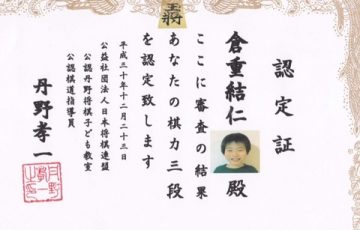 認定証
倉重結仁殿
ここに審査の結果
あなたの棋力三段
を認定致します
平成三十年十二月二十三日
公益社団法人日本将棋連盟
公認丹野将棋子ども教室
公認棋道指導員
丹野孝一